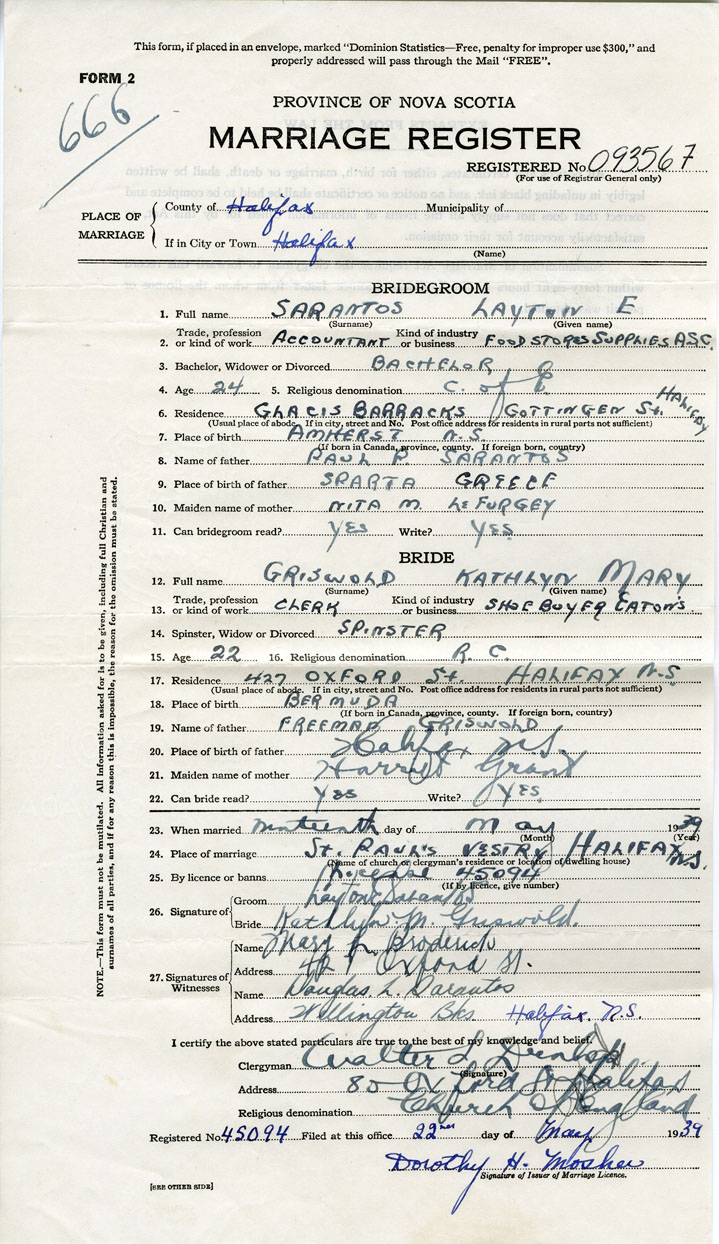 This form, if placed in an envelope, marked "Dominion Statistics—Free, penalty for improper use $300," and
properly addressed will pass through the Mail "FREE".
FORM 2
666
PROVINCE OF NOVA SCOTIA
MARRIAGE REGISTER
REGISTERED No. 093567
(For use of Registrar General only)
PLACE OF MARRIAGE
County of Halifax Municipality of
If in City or Town Halifax
(Name)
BRIDEGROOM
1. Full name SARANTOS LAYTON E
(Surname) (Given name)
2. Trade, profession or kind of work ACCOUNTANT Kind of industry or business FOOD STORES SUPPLIES ASC.
3. Bachelor, Widower or Divorced BACHELOR
4. Age 24 5. Religious denomination C. of E
6. Residence GLACIS BARRACKS GOTTINGEN St. HALIFAX
(Usual place of abode. If in city, street and No. Post office address for residents in rural parts not sufficient)
7. Place of birth AMHERST N.S.
(If born in Canada, province, county. If foreign born, country)
8. Name of father PAUL P. SARANTOS
9. Place of birth of father SPARTA GREECE
10. Maiden name of mother NITA M. LeFURGEY
11. Can bridegroom read? YES Write? YES
BRIDE
12. Full name GRISWOLD KATHLYN MARY
(Surname) (Given name)
13. Trade, profession or kind of work CLERK Kind of industry or business SHOE BUYER EATON'S
14. Spinster, Widow or Divorced SPINSTER
15. Age 22 16. Religious denomination R. C.
17. Residence 427 OXFORD St. HALIFAX N.S
(Usual place of abode. If in city, street and No. Post office address for residents in rural parts not sufficient)
18. Place of birth BERMUDA
(If born in Canada, province, county. If foreign born, country)
19. Name of father FREEMAN GRISWOLD
20. Place of birth of father Halifax N.S.
21. Maiden name of mother Harriet Grant
22. Can bride read? YES Write? YES
23. When married day of May 1939
(Month) (Year)
24. Place of marriage St. PAUL'S VESTRY HALIFAX N.S.
(Name of church or clergyman's residence or location of dwelling house)
25. By licence or banns 45094
(If by licence, give number)
26. Signature of
Groom Layton Sarantos
Bride Kathlyn M. Griswold.
27. Signatures of Witnesses
Name Mary Broderick
Address 427 Oxford St.
Name Douglas L. Sarantos
Address Wellington Bks Halifax. N.S.
I certify the above stated particulars are true to the best of my knowledge and belief.
Clergyman Walter L Dunlop
(Signature)
Address 85 Oxford St Halifax
Religious denomination Church of England
Registered No. 45094 Filed at this office 22nd day of May 1939
Dorothy H. Mosher
Signature of Issuer of Marriage Licence.
[SEE OTHER SIDE]
NOTE.—This form must not be mutilated. All information asked for is to be given, including full Christian and
surnames of all parties, and if for any reason this is impossible, the reason for the omission must be stated.